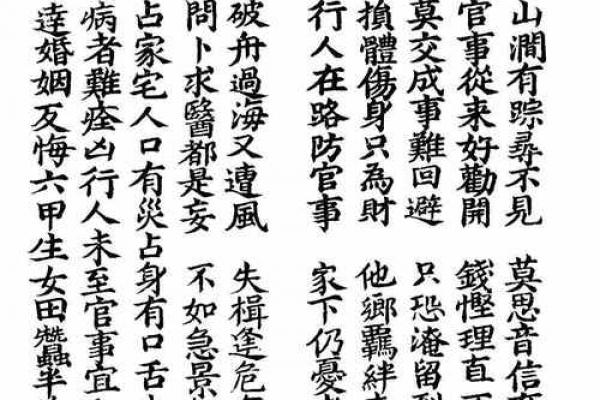 山澗有踪尋不見 莫思音信
官事從來好勸開 錢慳理直
莫交成事難回避 只恐淹留
損體傷身只為財 他鄉羈絆
行人在路防官事 家下仍憂
破舟過海又遭風 失楫逢危
問卜求醫都是妄 不如急景
占家宅人口有災占身有口舌
病者難痊凶行人未至官事宜
達婚姻反悔六甲生女田蠶半